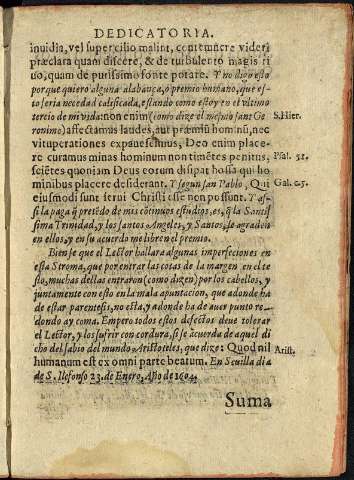 DEDICATORIA.
inuidia, vel supercilio malint, contemnere videri
præclara quam discere, & de turbulento magis ri
uo, quam de purissimo fonte potare. Y no digo esto
porque quiero alguna alabança, ò premio humano, que es-
to seria necedad calificada, estando como estoy en el vltimo
tercio de mi vida: non enim (como dize el mesmo sant Ge S.Hier.
ronimo) affectamus laudes, aut præmiũ hominũ, nec
vituperationes expauescimus, Deo enim place-
re curamus minas hominum non timẽtes penitus, Psal. 52.
sciẽtes quoniam Deus eorum disipat hossa qui ho
minibus placere desiderant. Y segun san Pablo, Qui Gal. c.5.
eiusmodi sunt serui Christi esse non possunt. Y as-
si la paga q̃ pretẽdo de mis cõtinuos estudios, es, q̃ la Santis
sima Trinidad, y los santos Angeles, y Santos, se agraden
en ellos, y en su acuerdo me libren el premio.
Bien se que el Lector hallara algunas imperfeciones en
esta Stroma, que por entrar las cotas de la margen en el te
sto, muchas dellas entraron (como dizen) por los cabellos, y
juntamente con esto en la mala apuntacion, que adonde ha
de estar parentesis, no esta, y adonde ha de auer punto re-
dondo ay coma. Empero todos estos defectos deue tolerar
el Lector, y los sufrir con cordura, si se acuerda de aquel di
cho del sabio del mundo Aristoteles, que dize: Quod nil Arist.
humanum est ex omni parte beatum. En Seuilla dia
de S. Ilefonso 23. de Enero, Año de 1604.
Suma